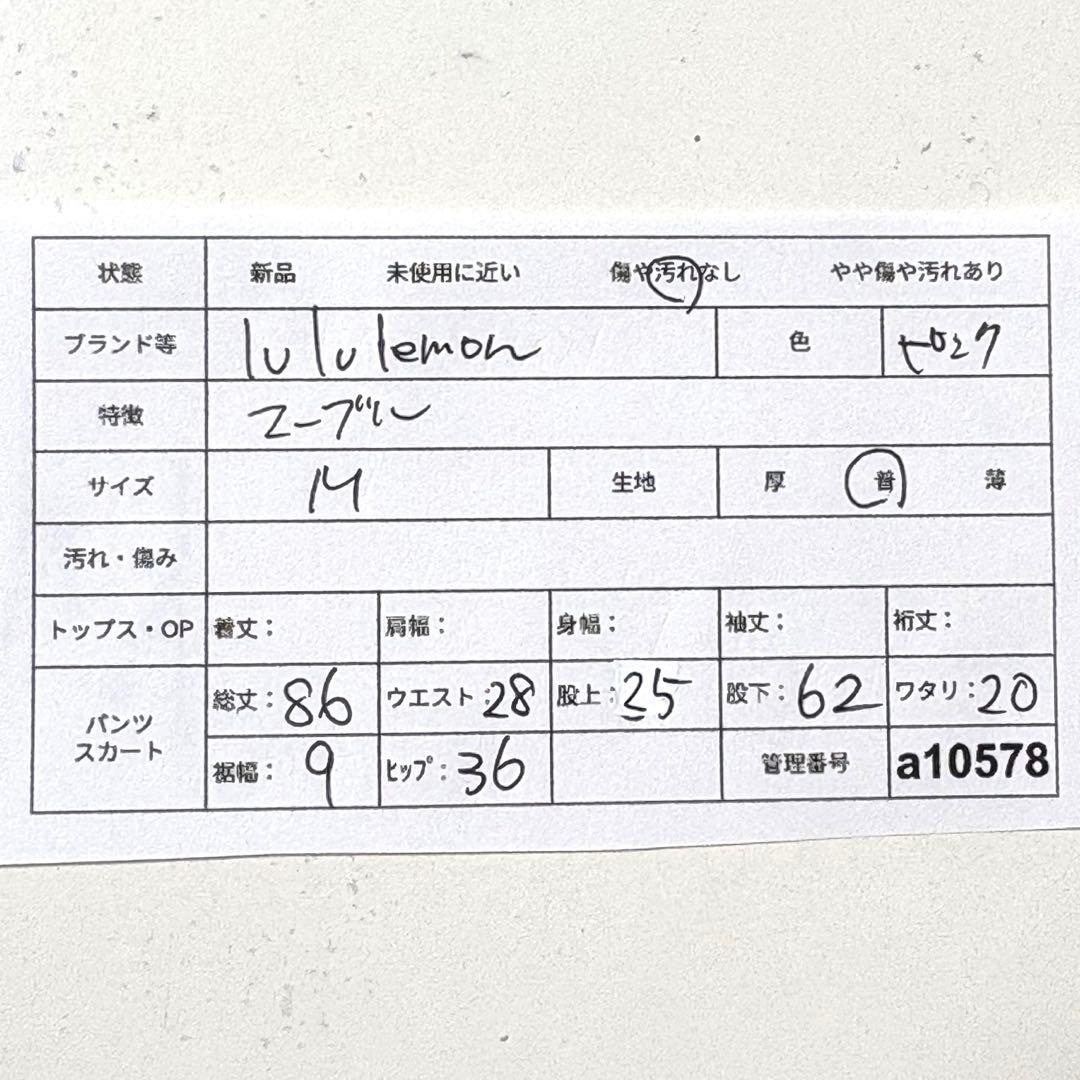 状態 新品 未使用に近い 傷や汚れなし やや傷や汚れあり
ブランド等 lululemon 色 ピンク
特徴 マーブル
サイズ M 生地 厚 普 薄
汚れ・傷み
トップス・OP 着丈: 肩幅: 身幅: 袖丈: 裄丈:
パンツ スカート 総丈:86 ウエスト:28 股上:25 股下:62 ワタリ:20
裾幅:9 ヒップ:36 管理番号 a10578